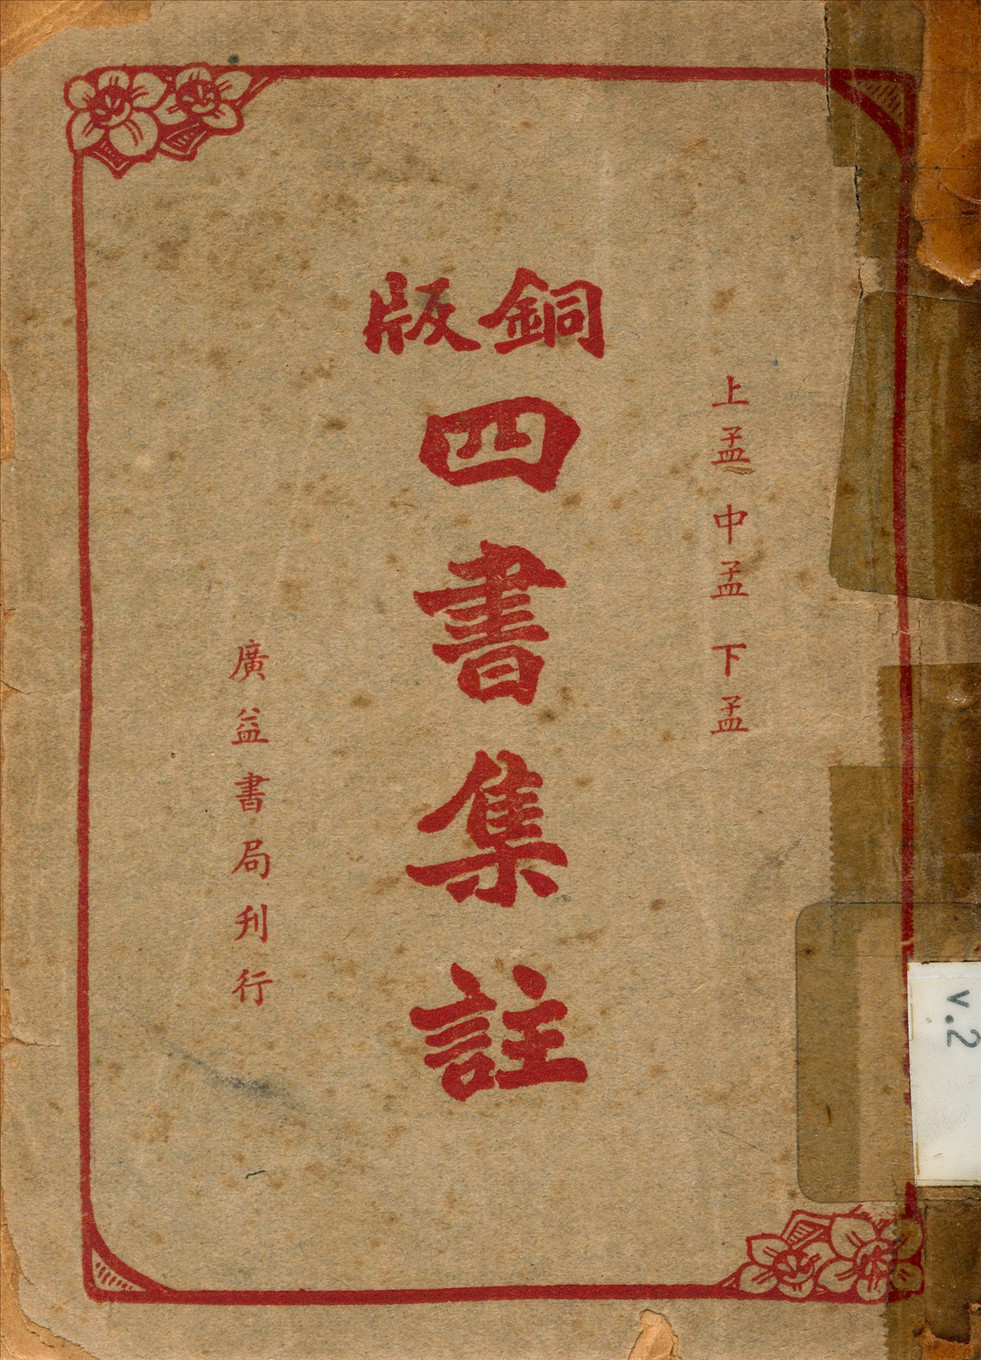 上孟 中孟 下孟
銅版
四書集註
廣益書局刊行
v.2